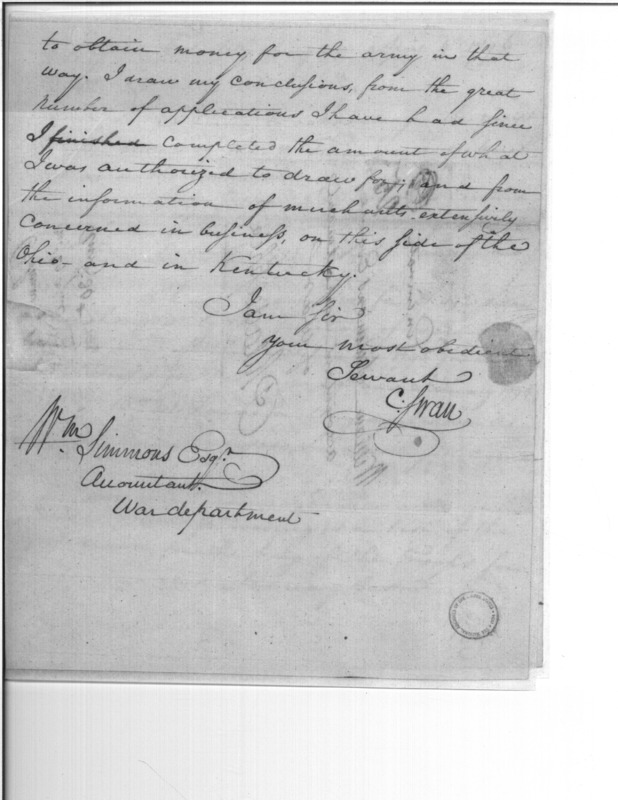 to obtain money for the army in that
way. I draw my conclusions, from the great
number of applications I have had since
I finished completed the amount of what
I was authorized to draw for; and from
the information of merchants extensively
concerned in business, on this side of the
Ohio and in Kentucky.
I am Sir
your most obedient
Servant
C. Swan
Wm. Simmons Esqr.
Accountant.
War department